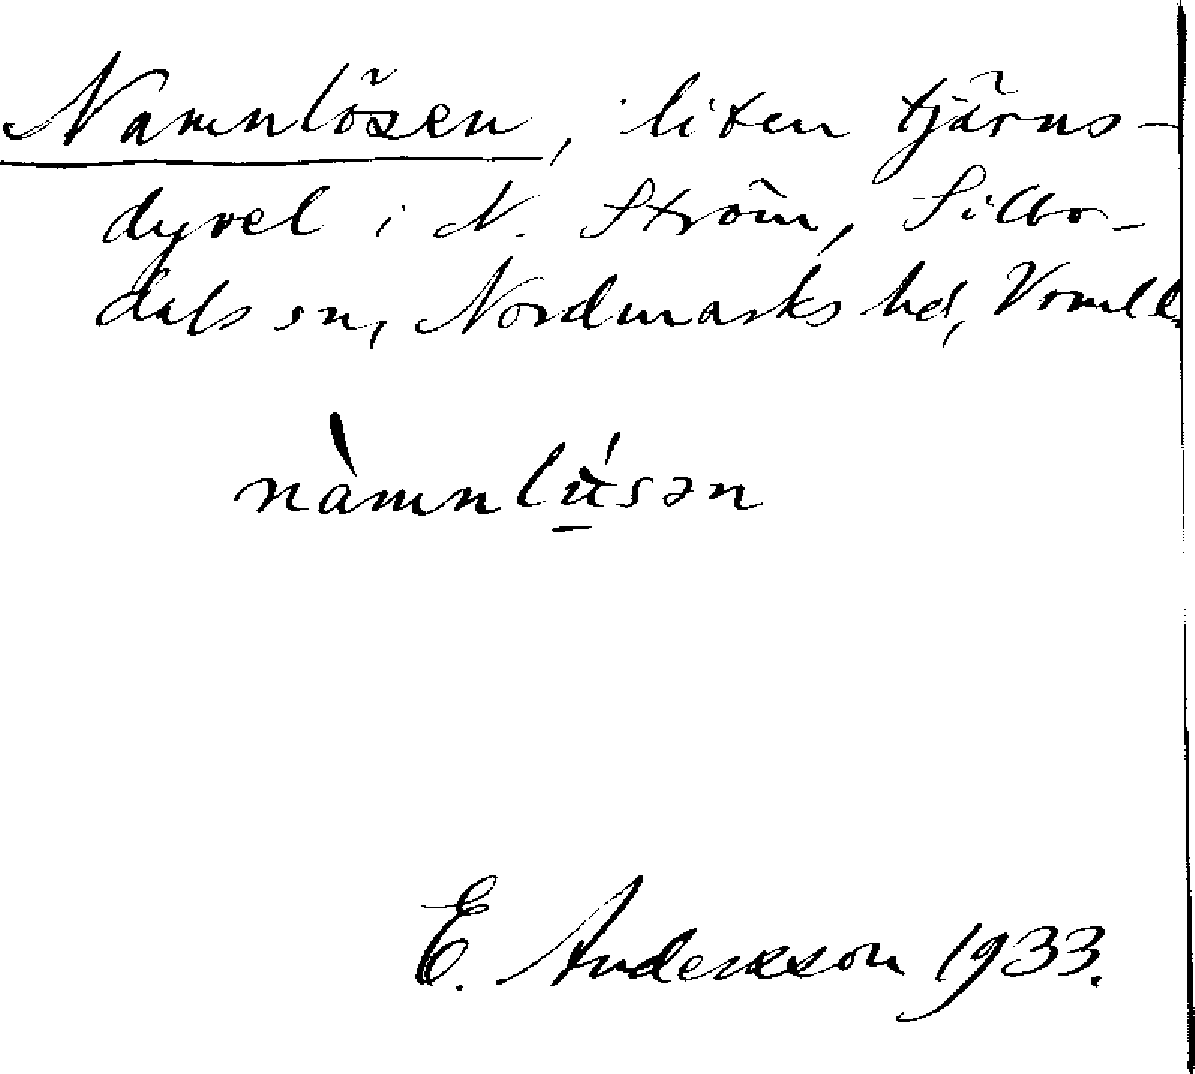 Namnlösen, liten tjärns-
dyvel i N. Ström, Silbo-
dals sn, Nordmarks hd, Vrmll.
nàmnlú̱sən
E. Andersson 1933.